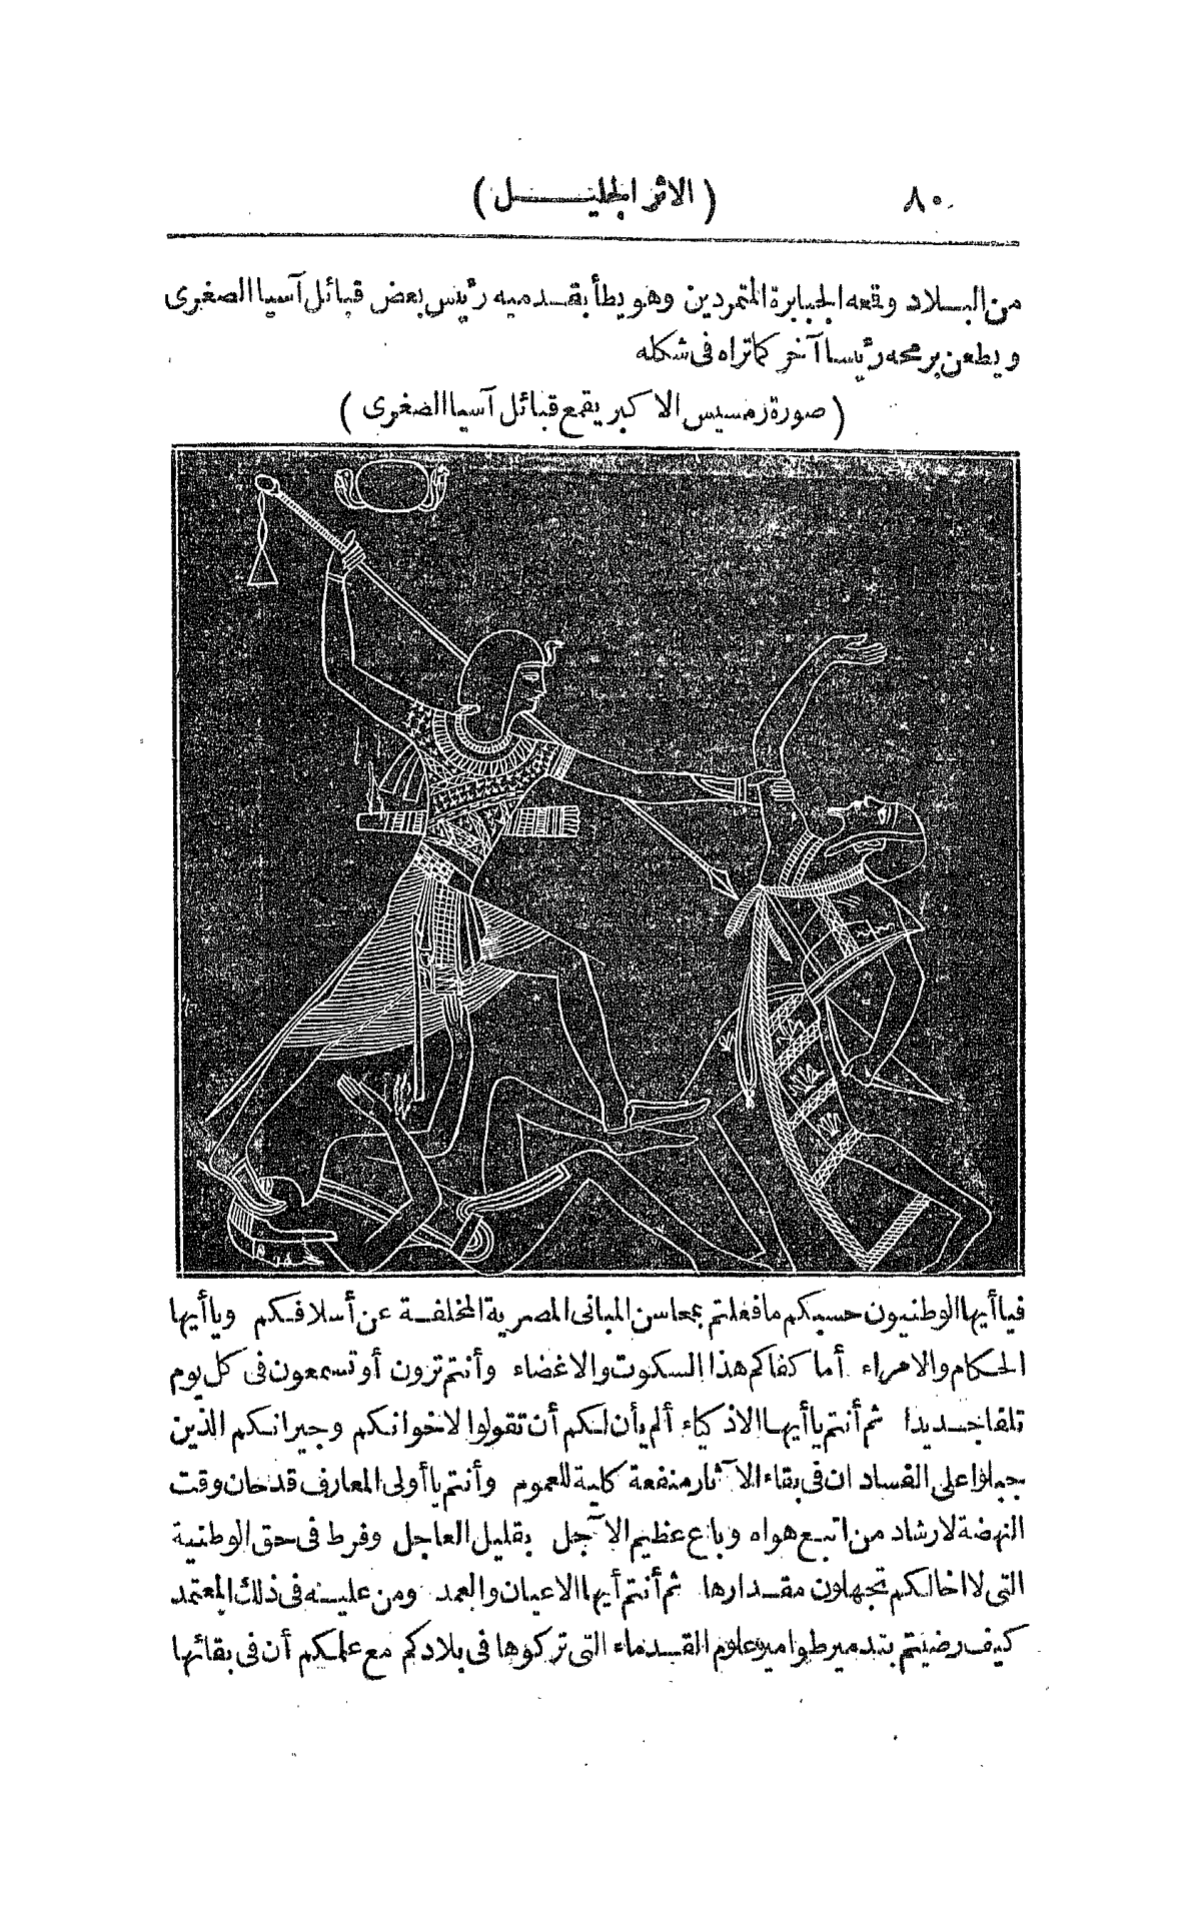 ٨٠ (الاثر الجليل)
من البلاد وقعه الجبابرة المتمردين وهو يطأ بقدميه رئيس بعض قبائل آسيا الصغرى
ويطعن برمحه رئيسا آخر كما تراه فى شكله
(صورة رمسيس الاكبر يقمع قبائل آسيا الصغرى)
فيا أيها الوطنيون حسبكم ما فعلتم بمحاسن المبانى المصرية المخلفة عن أسلافكم ويا أيها
الحكام والامراء أما كفاكم هذا السكوت والاغضاء وأنتم ترون أو تسمعون فى كل يوم
تلفا جديدا ثم أنتم يا أيها الاذكياء ألم يأن لكم أن تقولوا لاخوانكم وجيرانكم الذين
جبلوا على الفساد ان فى بقاء الآثار منفعة كلية للعموم وأنتم يا أولى المعارف قد حان وقت
النهضة لارشاد من اتبع هواه وباع عظيم الآجل بقليل العاجل وفرط فى حق الوطنية
التى لا اخالكم تجهلون مقدارها ثم أنتم أيها الاعيان والعمد ومن عليه فى ذلك المعتمد
كيف رضيتم بتدمير طوامير علوم القدماء التى تركوها فى بلادكم مع علمكم أن فى بقائها